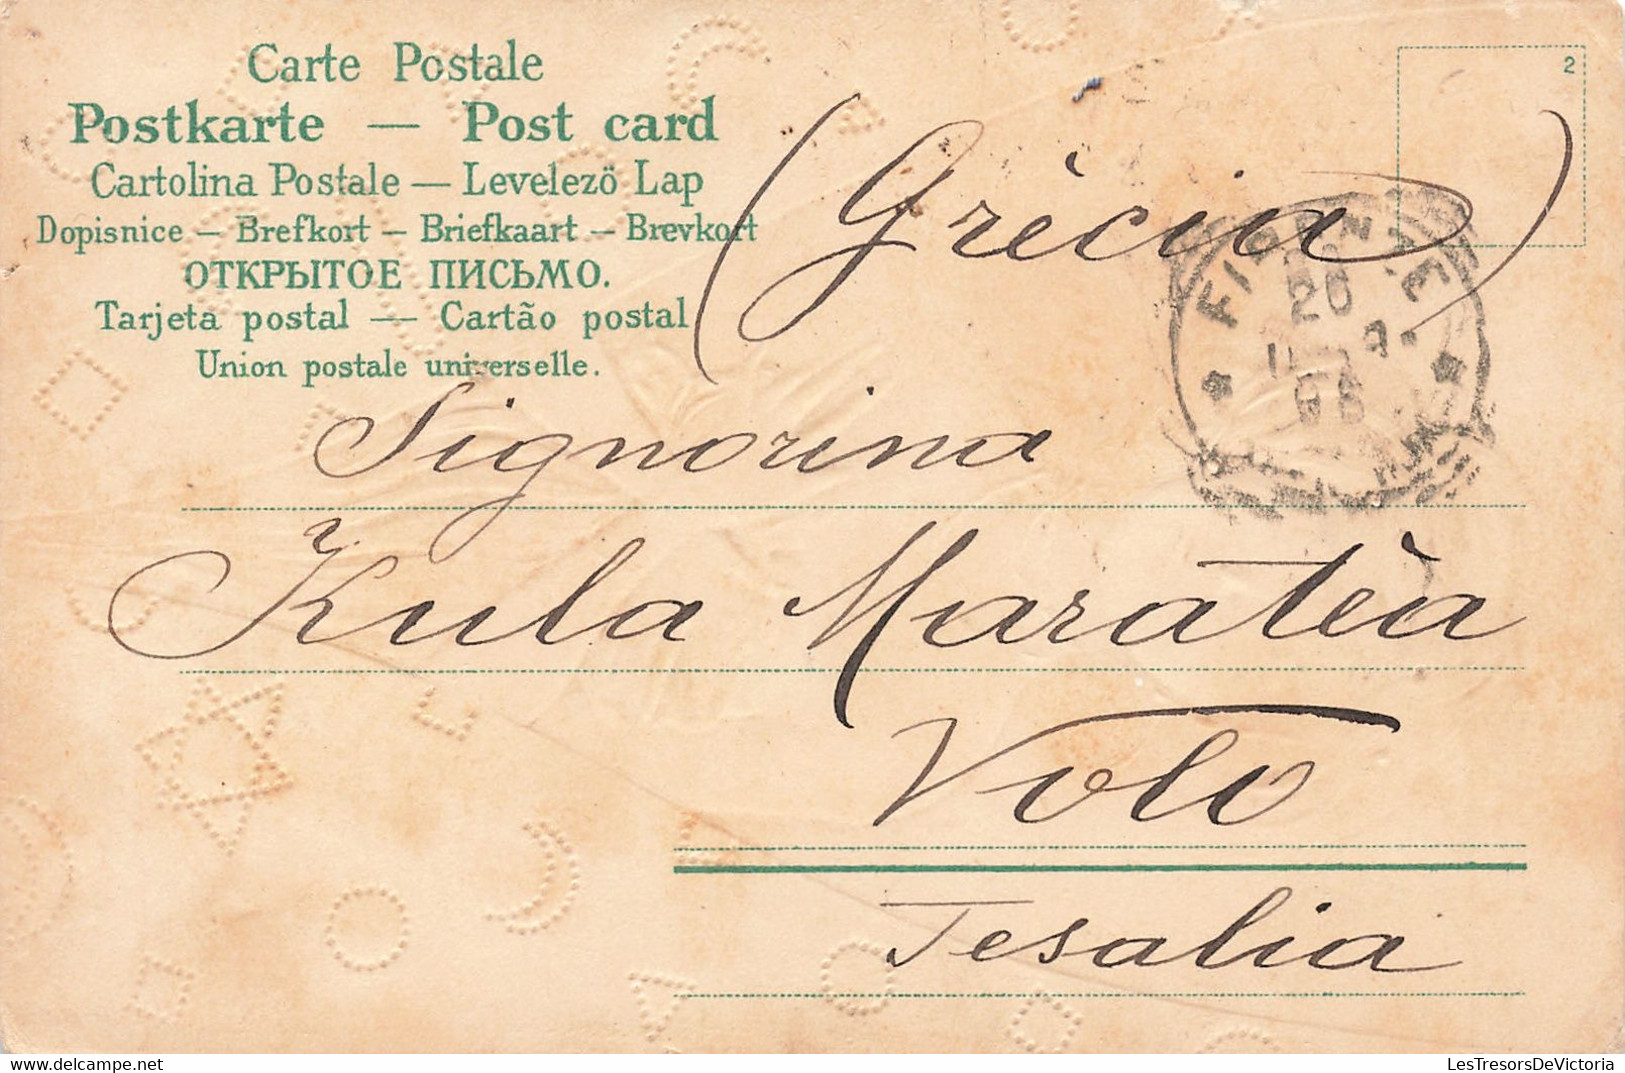 Carte Postale
Postkarte — Post card
Cartolina Postale — Levelező Lap
Dopisnice — Brefkort — Briefkaart — Brevkort
ОТКРЫТОЕ ПИСЬМО.
Tarjeta postal — Cartão postal
Union postale universelle.
2
(Grècia)
FIRENZE
20
Signorina
Kula Maratèa
Volo
Tesalia
LesTresorsDeVictoria